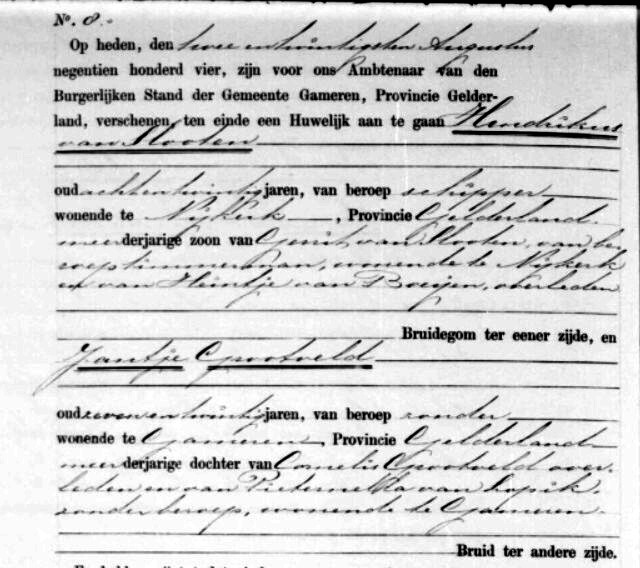 No. 8.
Op heden, den twee en twintigsten Augustus
negentien honderd vier, zijn voor ons Ambtenaar van den
Burgerlijken Stand der Gemeente Gameren, Provincie Gelder-
land, verschenen, ten einde een Huwelijk aan te gaan Hendrikus
van Slooten
oud achtentwintig jaren, van beroep schipper
wonende te Nijkerk, Provincie Gelderland
meerderjarige zoon van Gerrit van Slooten, van be-
roep timmerman, wonende te Nijkerk
en van Heintje van Boeijen, overleden
Bruidegom ter eener zijde, en
Jantje Grootveld
oud zevenentwintig jaren, van beroep zonder
wonende te Gameren, Provincie Gelderland
meerderjarige dochter van Cornelis Grootveld over-
leden en van Pieternella van Kopik
zonder beroep, wonende te Gameren.
Bruid ter andere zijde.